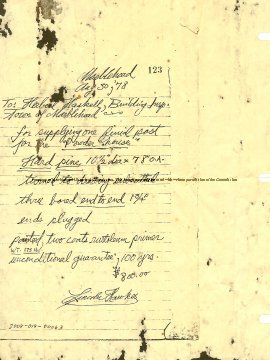 Marblehead
123
Aug 30, '78
To: Herbert Haskell, Building Insp.
Town of Marblehead
for supplying one finial post
for the "Powder house"
Hard pine 10½ dia x 7'8" o.a.
thru bored end to end 1⅜"
ends plugged
painted, two coats primer
unconditional guarantee - 100 yrs.
$800.00
Lincoln Hawkes
2004-014-00063